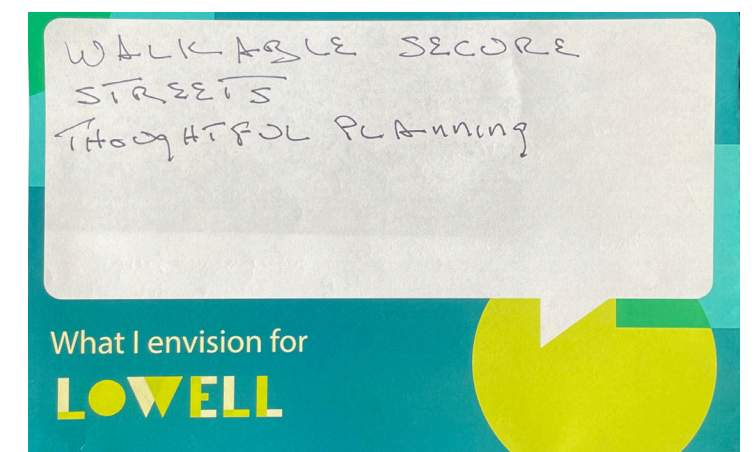 WALKABLE SECURE
STREETS
THOUGHTFUL PLANNING
What I envision for
LOWELL